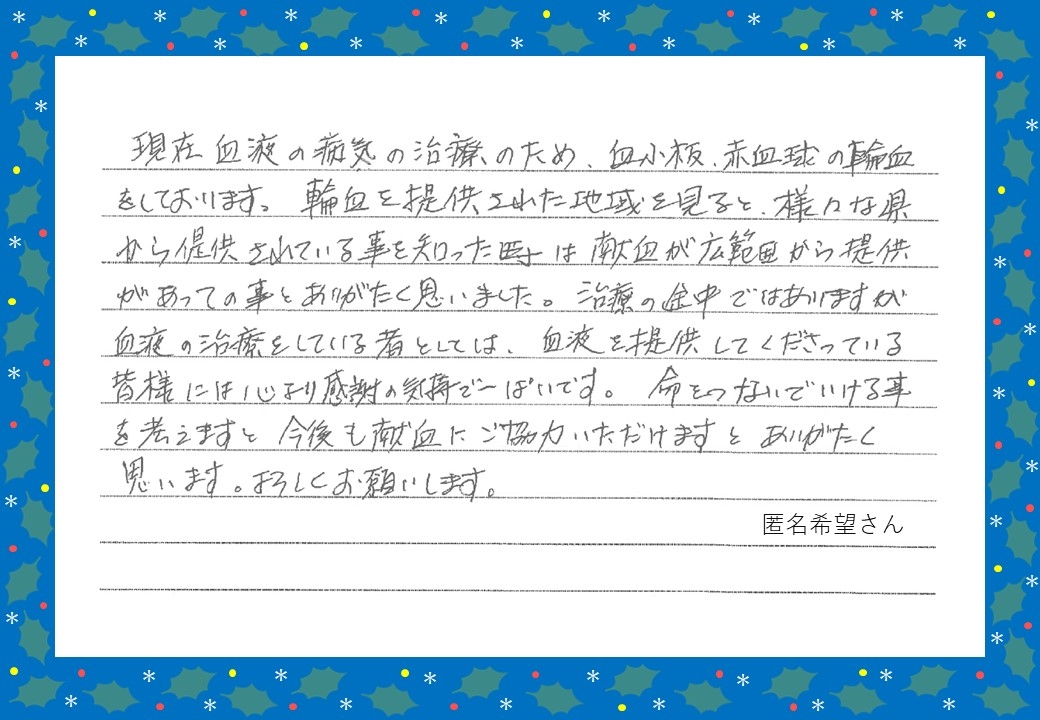 現在血液の病気の治療のため、血小板、赤血球の輸血
をしております。輸血を提供された地域を見ると、様々な県
から提供されている事を知った時は献血が広範囲から提供
があっての事とありがたく思いました。治療の途中ではありますが
血液の治療をしている者としては、血液を提供してくださっている
皆様には心より感謝の気持で一ぱいです。命をつないでいける事
を考えますと今後も献血にご協力いただけますとありがたく
思います。よろしくお願いします。
匿名希望さん